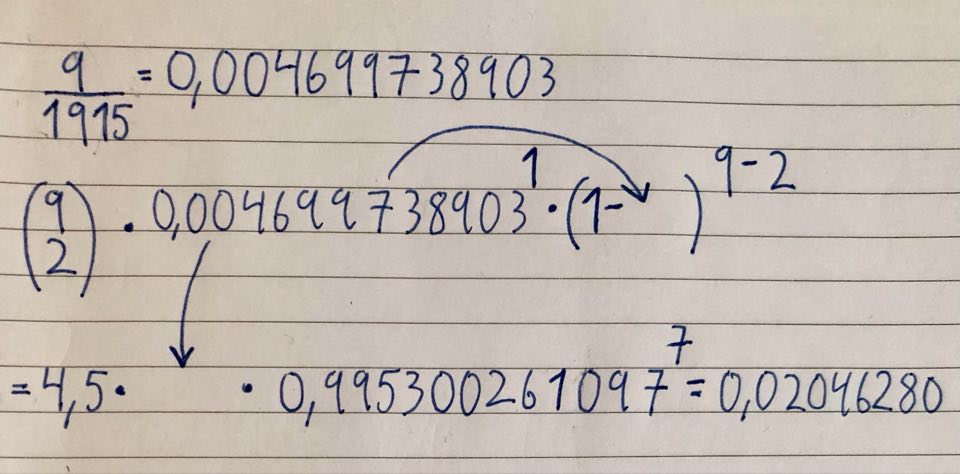 9/1915 = 0,004699738903
(9 2) · 0,004699738903^1 · (1- )^9-2
= 4,5 · · 0,995300261097^7 = 0,02046280